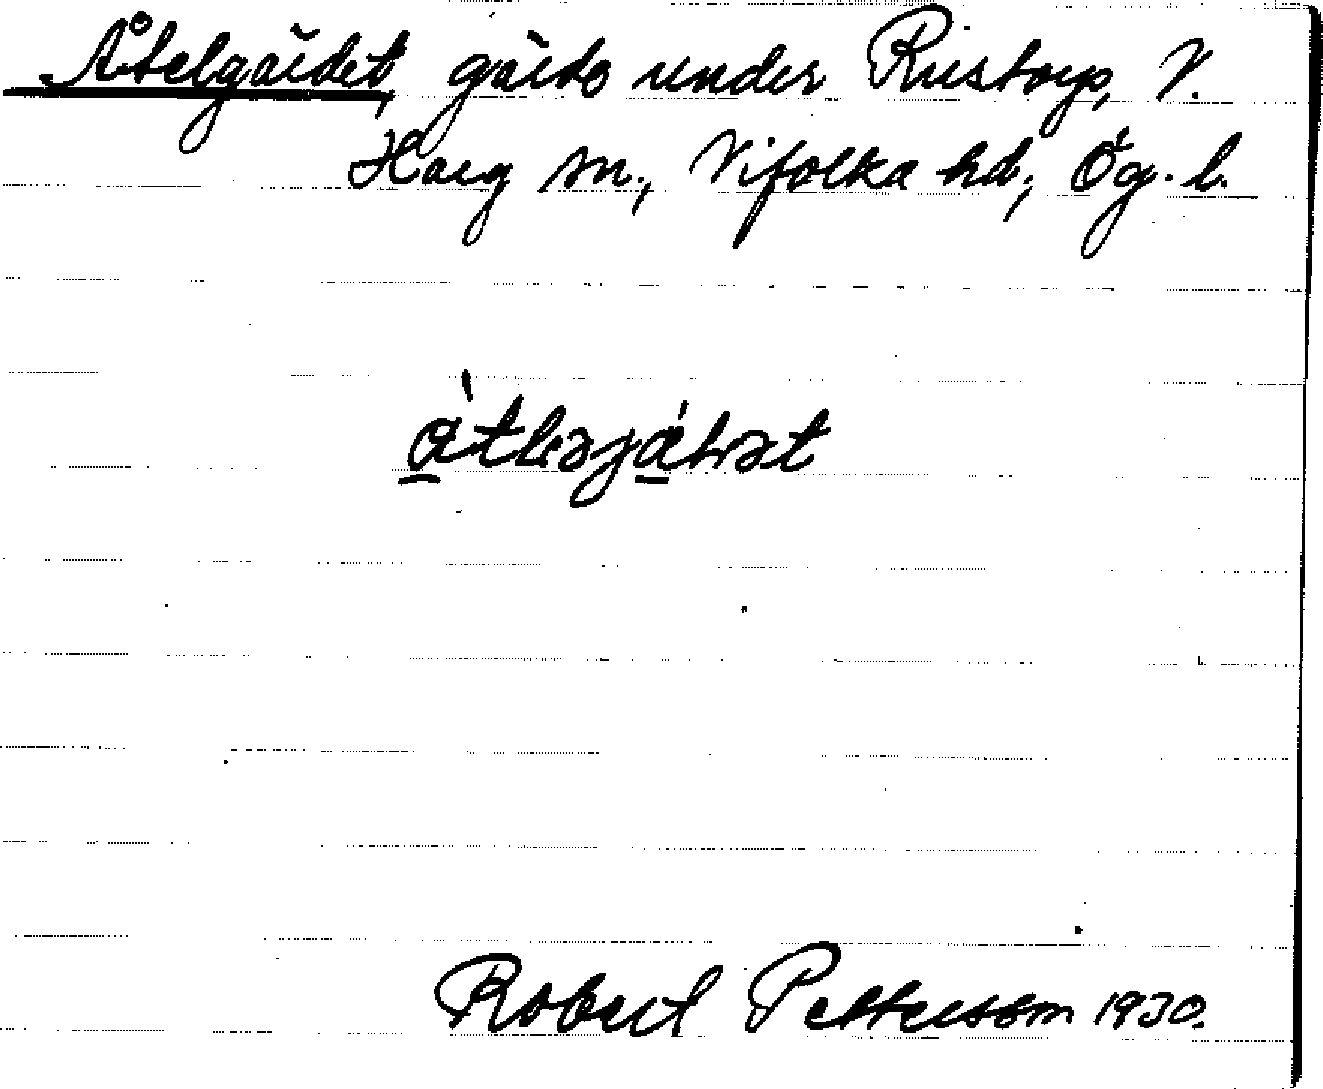 Åtelgärdet, gärde under Ristorp, V.
Harg sn., Vifolka hd., Ög. l.
Robert Pettersson 1930.